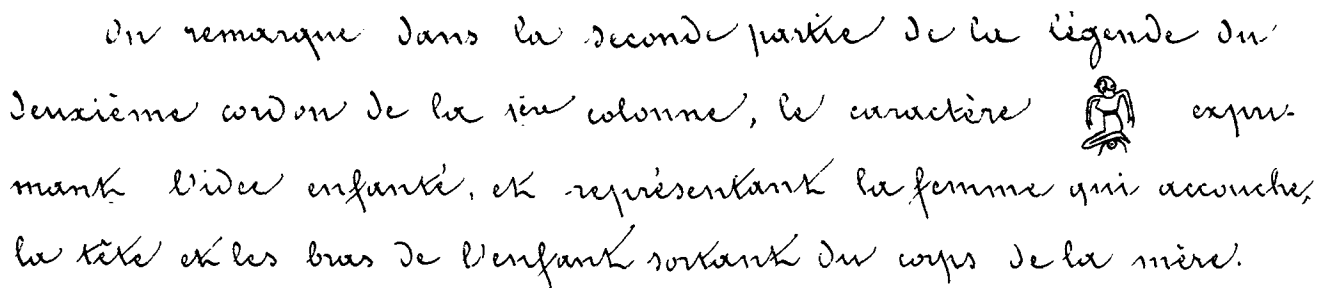 On remarque dans la seconde partie de la légende du
deuxième cordon de la 1ère colonne, le caractère expri-
mant l'idée enfanté, et représentant la femme qui accouche,
la tête et les bras de l'enfant sortant du corps de la mère.